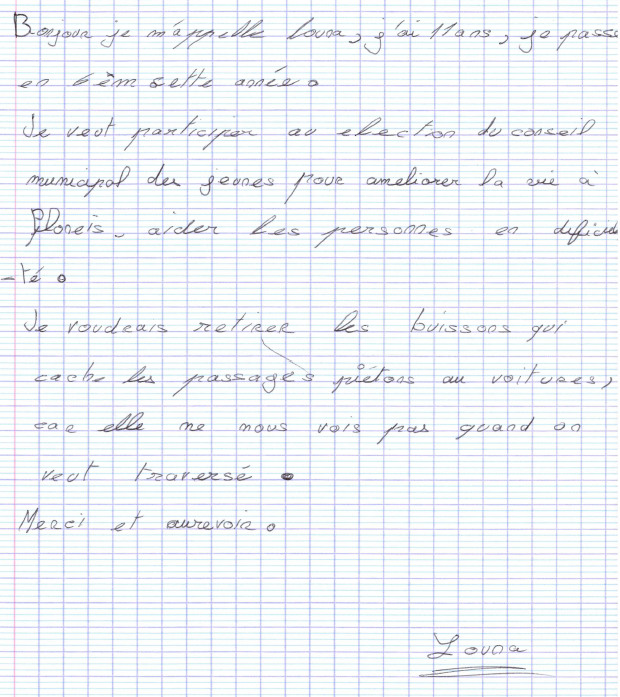 Bonjour je m'appelle Louna, j'ai 11 ans, je passe
en 6èm sette année.
Je veut participer au election du conseil
municipal des jeunes pour ameliorer la vie à
Ploneis, aider les personnes en dificul
-té.
Je voudrais retirer les buissons qui
cache les passages piétons au voitures,
car elle ne nous vois pas quand on
veut traversé.
Merci et aurevoir.
Louna